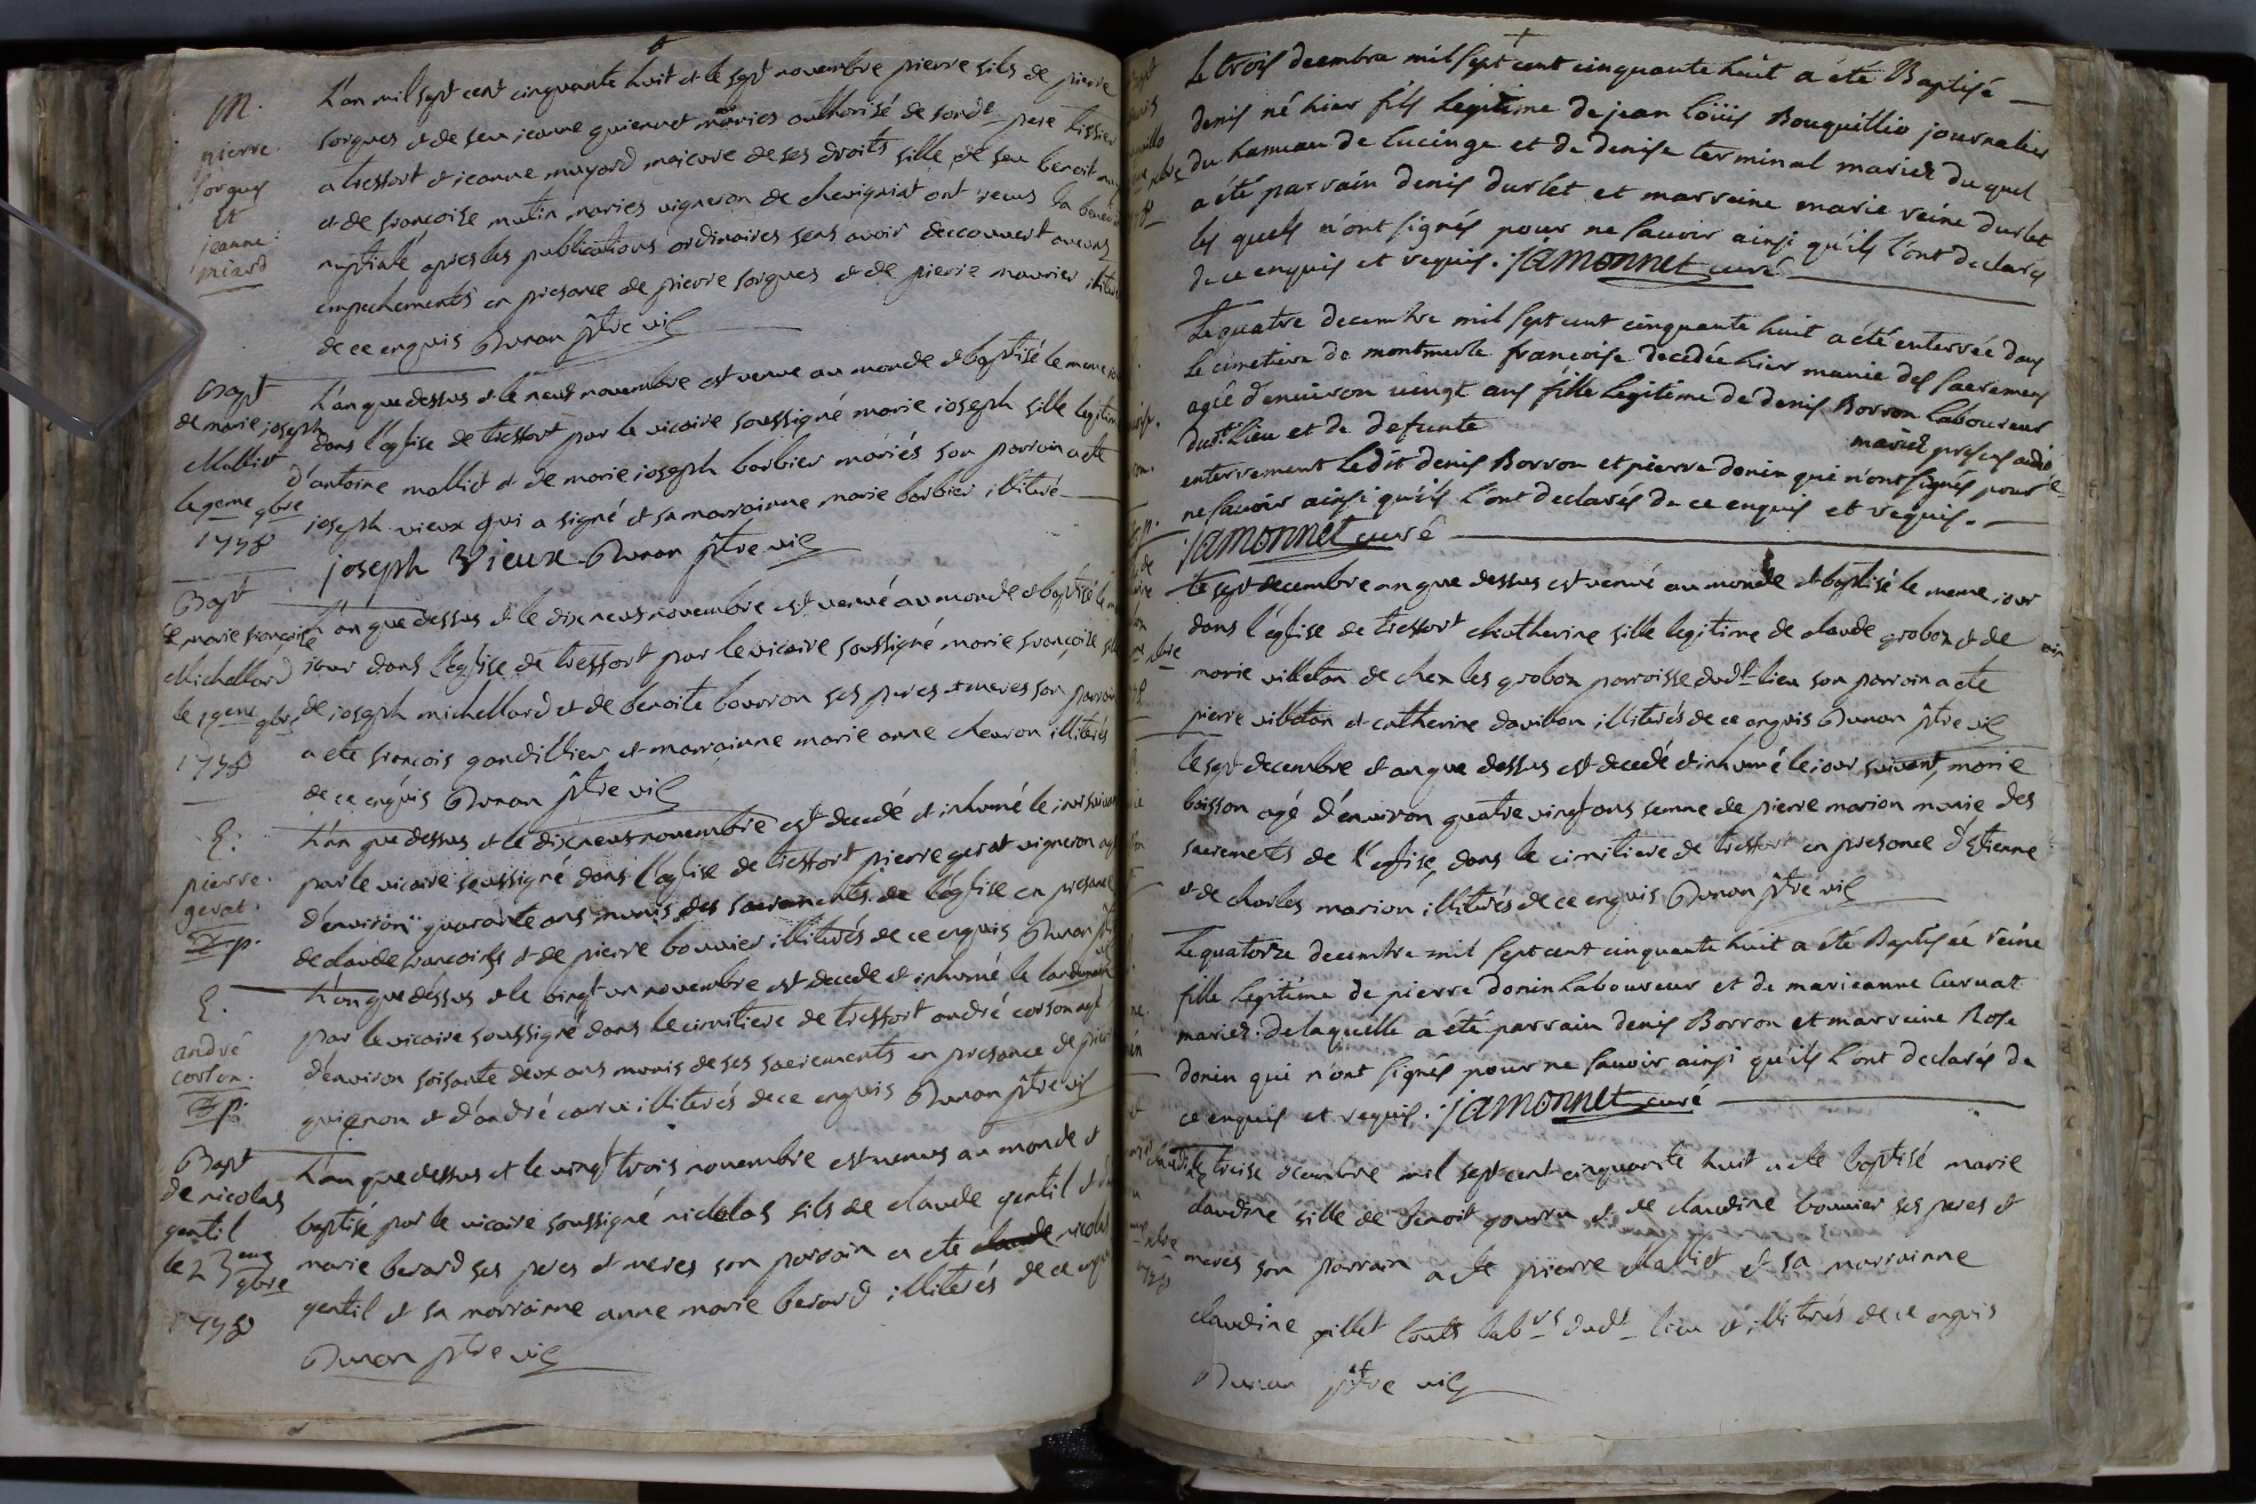 M.
pierre
sorgues
et
jeanne
miard
L'an mil sept cent cinquante huit et le sept novembre pierre fils de pierre
sorgues et de feu jeanne guiennet mariés authorisé de sondt pere tissier
a tressort et jeanne muyard majeure de ses droits fille de feu benoit
et de françoise mutin mariés vigneron de chevigniat ont reçus la
nuptiale apres les publications ordinaires sens avoir decouvert aucuns
empechements en presance de pierre sorgues et de pierre maurier
de ce enquis Duvan ptre vic
Bapt
de marie joseph
Malliet
le 9eme 9bre
1758
L'an que dessus et le neuf novembre est venue au monde et baptisé le meme
dans l'eglise de tressort par le vicaire soussigné marie joseph fille legitime
d'antoine malliet et de marie joseph barbier mariés son parrain a ete
joseph vieux qui a signé et sa marrainne marie barbier illiteré
joseph Vieux Duvan ptre vic
Bapt
de marie françoise
Michellard
le 19eme 9bre
1758
L'an que dessus et le dix neuf novembre est venué au monde et baptisé le
jour dans l'eglise de tressort par le vicaire soussigné marie françoise
de joseph michellard et de benoite bourron ses peres et meres son parrain
a ete françois gandillier et marrainne marie anne chevron illiterés
de ce enquis Duvan ptre vic
E.
pierre
gerat
p.
L'an que dessus et le dix neuf novembre est decedé et inhumé le jour suivant
par le vicaire soussigné dans l'eglise de tressort pierre gerat vigneron
d'environ quarante ans munis des sacrements de l'eglise en presance
de claude françoise et de pierre bouvier illiterés de ce enquis Duvan ptre
vic
E.
andré
corton
p.
L'an que dessus et le vingt un novembre est decede et inhumé le landemain
par le vicaire soussigné dans le cimitiere de tressort andré corton agé
d'environ soisante deux ans munis de ses sacrements en presance de pierre
guignon et d'andré illiterés de ce enquis Duvan ptre vic
Bapt
de nicolas
gentil
le 23eme
9bre
1758
L'an que dessus et le vingt trois novembre est venus au monde et
baptisé par le vicaire soussigné nicolas fils de claude gentil et de
marie berard ses peres et meres son parrain a ete claude nicolas
gentil et sa marrainne anne marie berard illiterés de ce enquis
Duvan ptre vic
Le trois decembre mil sept cent cinquante huit a été Baptisé
denis né hier fils legitime de jean loüis Bouquillio journalier
du hameau de lucinge et de denise terminal mariez duquel
a été parrain denis durlet et marreine marie reine durlet
les quels n'ont signés pour ne savoir ainsi qu'ils l'ont declarés
de ce enquis et requis. jamonnet curé
Le quatre decembre mil sept cent cinquante huit a été enterrée dans
le cimetiere de montmerle françoise decedée hier munie des sacremens
agée d'environ vingt ans fille legitime de denis Borron laboureur
dudt lieu et de defunte
mariez presens audit
enterrement ledit denis Borron et pierre donin qui n'ont signés pour
ne savoir ainsi qu'ils l'ont declarés de ce enquis et requis.
jamonnet curé
le sept decembre an que dessus est venué au monde et baptisé le meme jour
dans l'église de tressort chatherine fille legitime de claude grobon et de
marie villeton de chex les grobon parroisse dudt lieu son parrain a ete
pierre villeton et catherine davillon illiterés de ce enquis Duvan ptre vic
le sept decembre et an que dessus est decedé et inhumé le jour suivant, marie
boisson agé d'environ quatre vingt ans femme de pierre marion munie des
sacrements de l'eglise, dans le cimitiere de tressort en presance d'Etienne
et de charles marion illiterés de ce enquis Duvan ptre vic
Le quatorze decembre mil sept cent cinquante huit a été Baptisée reine
fille legitime de pierre donin laboureur et de marieanne Curvat
mariez. de laquelle a été parrain denis Borron et marreine Rose
donin qui n'ont signés pour ne savoir ainsi qu'ils l'ont declarés de
ce enquis et requis. jamonnet curé
le treise decembre mil sept cent cinquante huit a ete baptisé marie
claudine fille de benoit gourru et de claudine bouvier ses peres et
meres son parrain a ete pierre Malliet et sa marrainne
claudine pillet touts labrs dudt lieu et illiterés de ce enquis
Duvan ptre vic